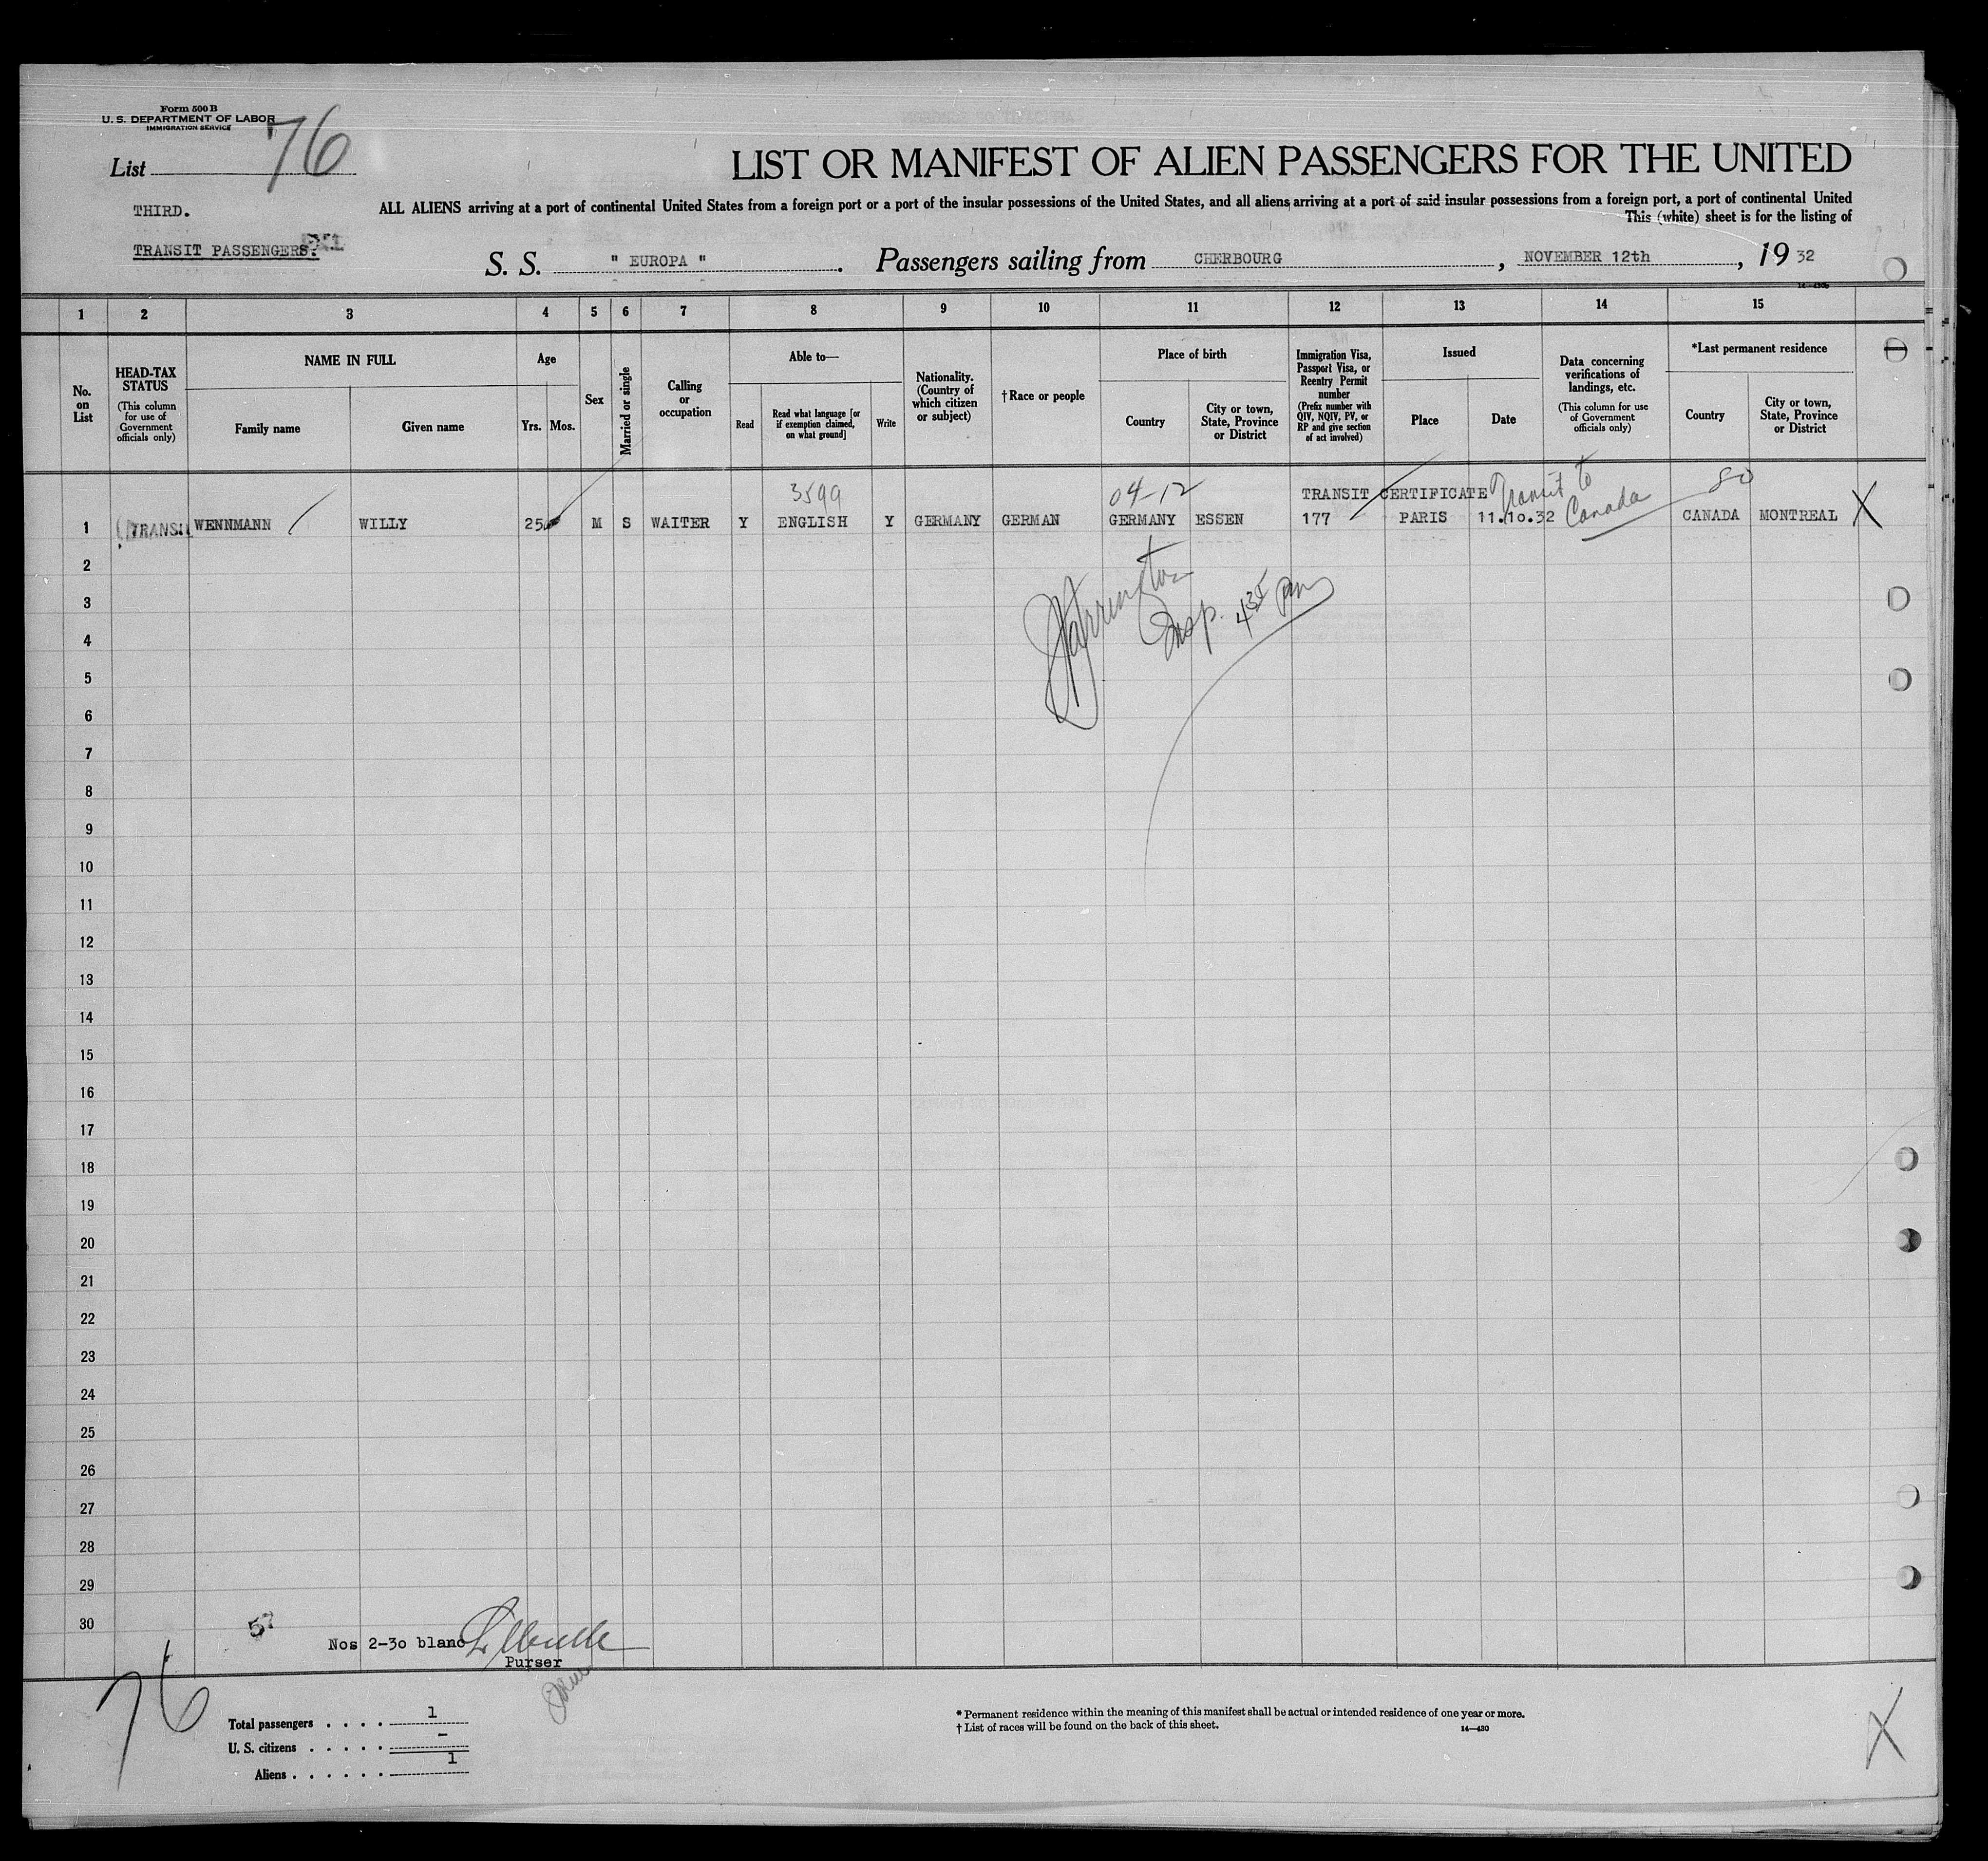 Form 500 B
U. S. DEPARTMENT OF LABOR
IMMIGRATION SERVICE
List 76
THIRD.
TRANSIT PASSENGERS.
LIST OR MANIFEST OF ALIEN PASSENGERS FOR THE UNITED
ALL ALIENS arriving at a port of continental United States from a foreign port or a port of the insular possessions of the United States, and all aliens arriving at a port of said insular possessions from a foreign port, a port of continental United
This (white) sheet is for the listing of
S. S. " EUROPA " . Passengers sailing from CHERBOURG , NOVEMBER 12th , 19 32
1 2 3 4 5 6 7 8 9 10 11 12 13 14 15
No. on List
HEAD-TAX STATUS (This column for use of Government officials only)
NAME IN FULL
Family name
Given name
Age
Yrs. Mos.
Sex
Married or single
Calling or occupation
Able to—
Read
Read what language [or if exemption claimed, on what ground]
Write
Nationality. (Country of which citizen or subject)
†Race or people
Place of birth
Country
City or town, State, Province or District
Immigration Visa, Passport Visa, or Reentry Permit number (Prefix number with QIV, NQIV, PV, or RP and give section of act involved)
Issued
Place
Date
Data concerning verifications of landings, etc. (This column for use of Government officials only)
*Last permanent residence
Country
City or town, State, Province or District
3599 04-12 TRANSIT CERTIFICATE Transit to Canada 80
1 TRANSIT WENNMANN WILLY 25 M S WAITER Y ENGLISH Y GERMANY GERMAN GERMANY ESSEN 177 PARIS 11.10.32 CANADA MONTREAL X
Insp. 4 35 pm
2
3
4
5
6
7
8
9
10
11
12
13
14
15
16
17
18
19
20
21
22
23
24
25
26
27
28
29
30
57
Nos 2-30 blanc
Purser
76
Total passengers . . . . 1
U. S. citizens . . . . . –
Aliens . . . . . . 1
* Permanent residence within the meaning of this manifest shall be actual or intended residence of one year or more.
† List of races will be found on the back of this sheet.
14—430
X